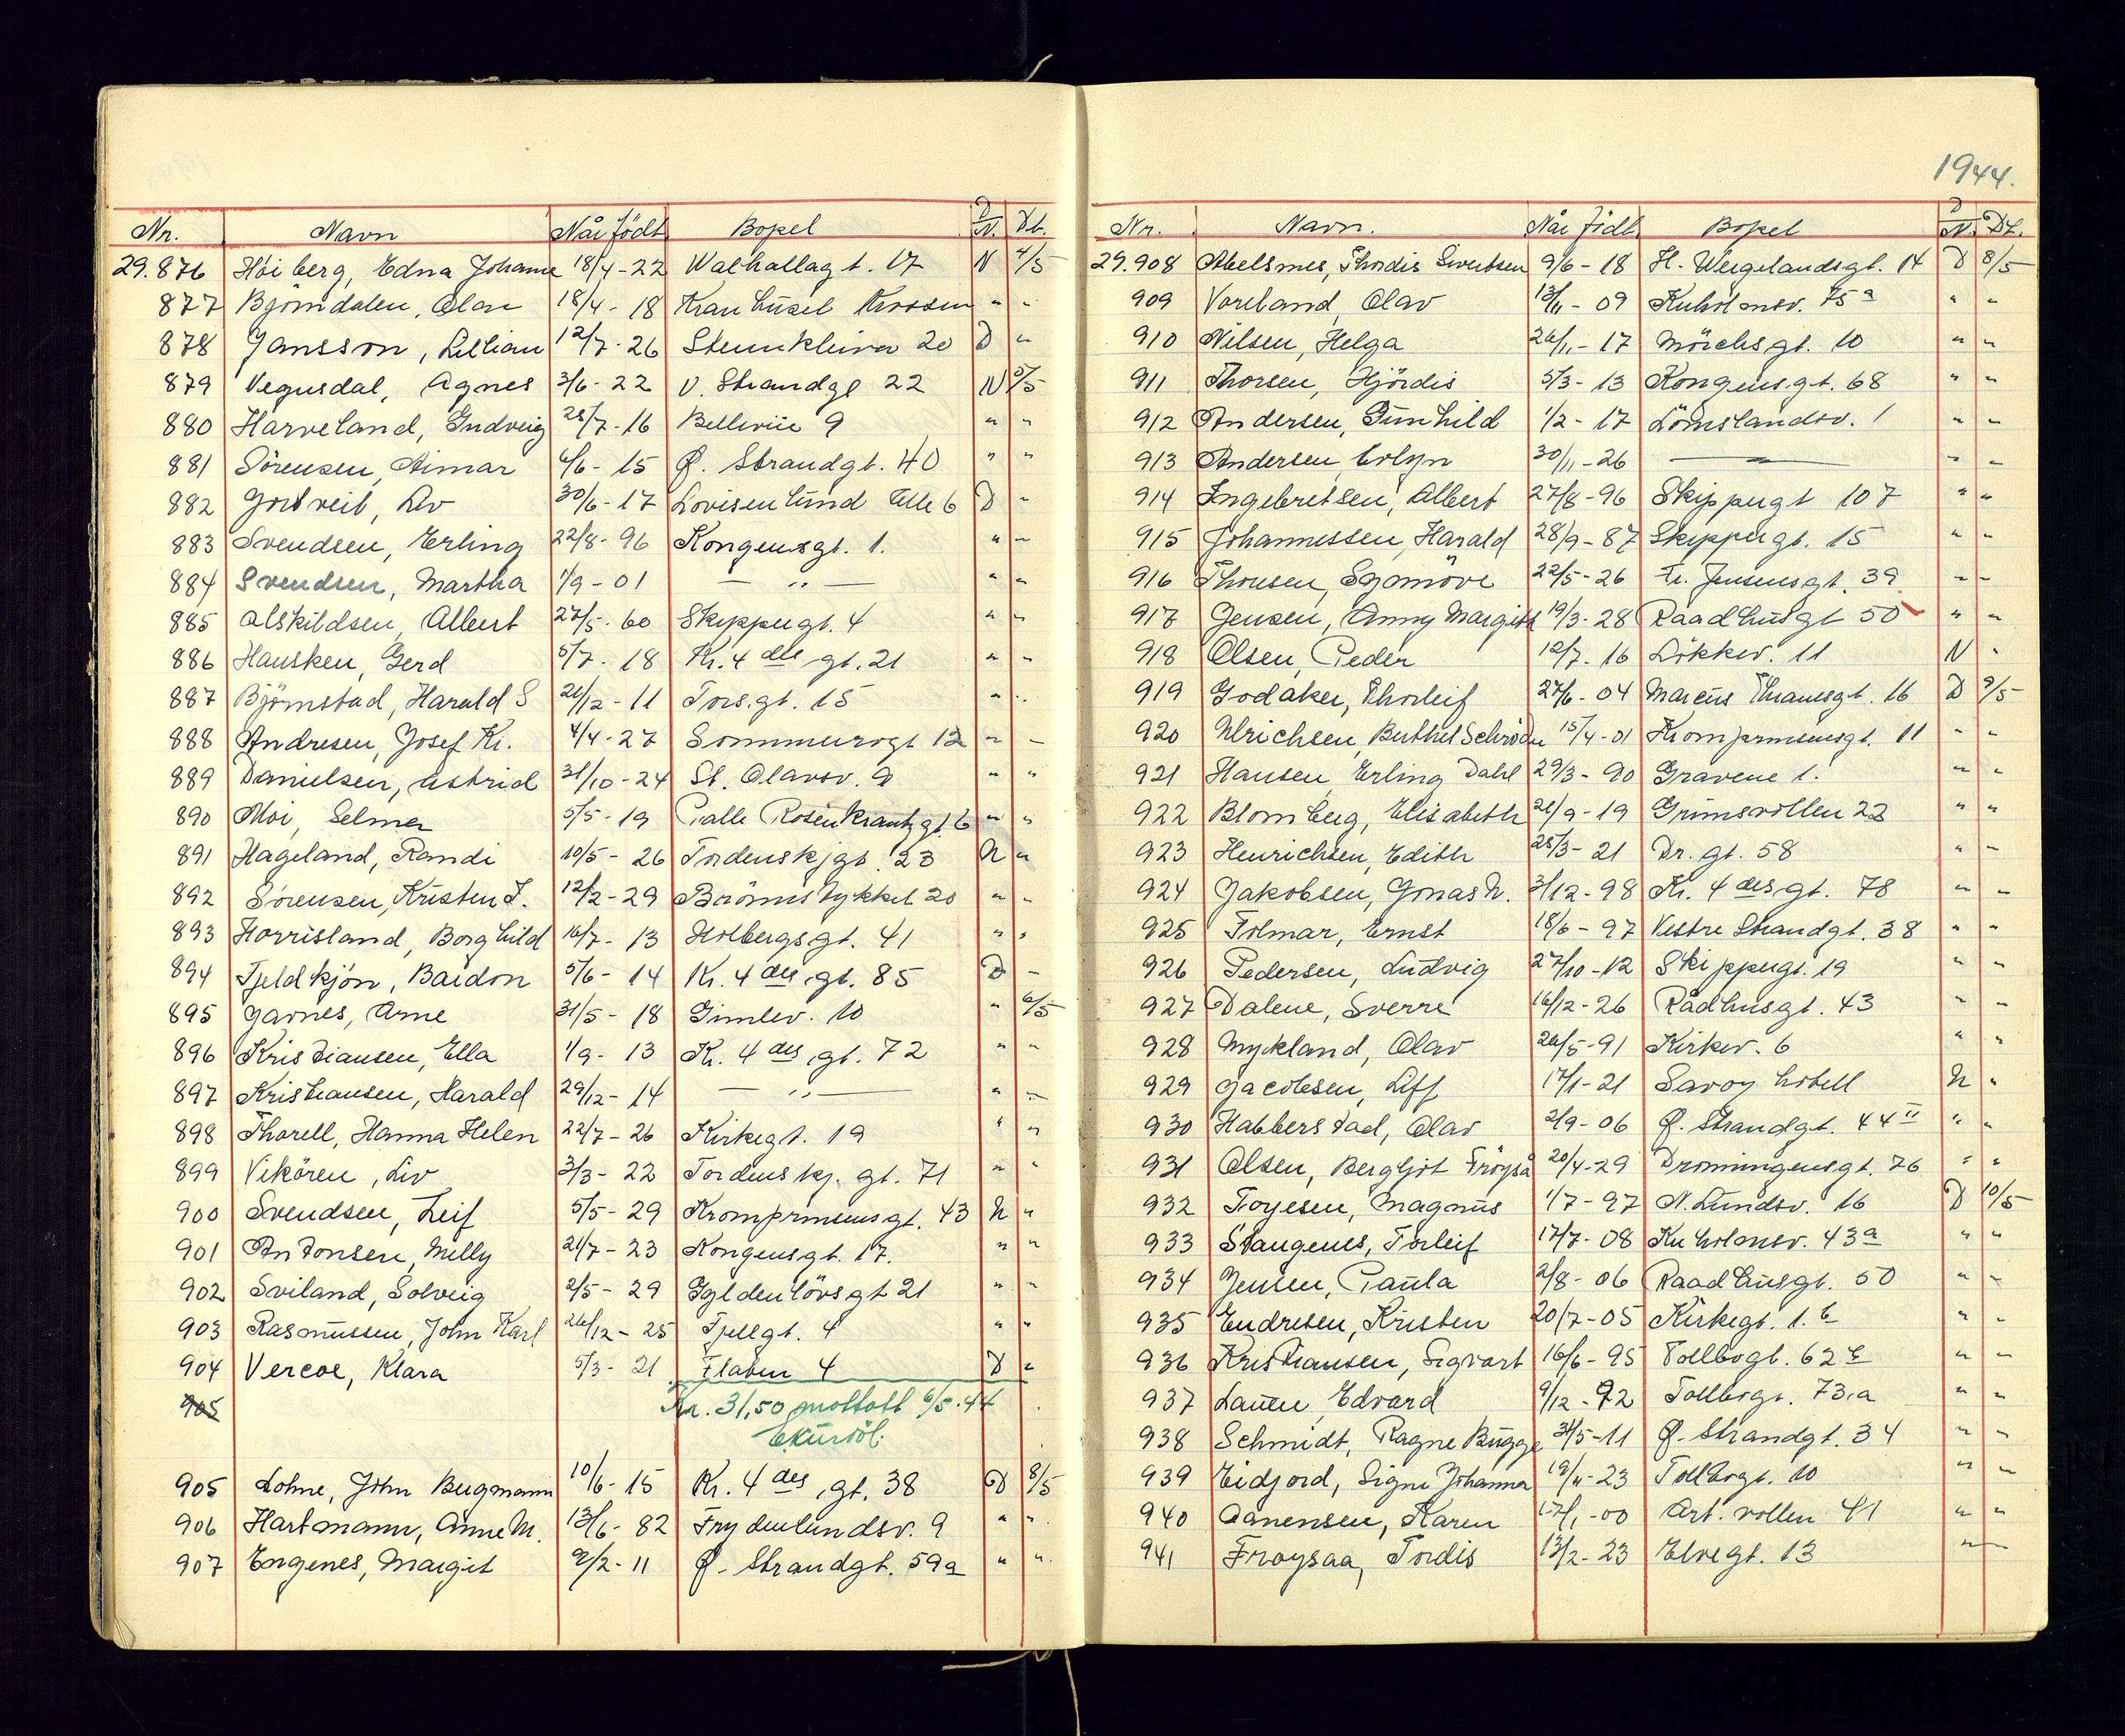 Nr. Navn Når født Bopel D/N. Dt.
29.876 Høiberg, Edna Johanne 18/4-22 Walhallagt. 17 N 4/5
877 Björndalen, Olav 18/4-18 Krossen " "
878 Jansson, Lillian 12/7-26 Stemkleiva 20 D "
879 Vegusdal, Agnes 3/6-22 V. Strandgt 22 N 5/5
880 Harveland, Gudveig 28/7-16 Bellevue 9 " "
881 Sörensen, Aimar 4/6-15 Ø. Strandgt. 40 " "
882 Jortveit, Liv 30/6-17 Lovisenlund Elle 6 D "
883 Svendsen, Erling 22/8-96 Kongensgt. 1. " "
884 Svendsen, Martha 1/9-01 — " — " "
885 Alskildsen, Albert 27/5-60 Skippergt. 4 " "
886 Hausken, Gerd 5/7-18 Kr. 4 des gt. 21 " "
887 Björnstad, Harald S 21/12-11 Torsgt. 15 " "
888 Andresen, Josef Kr. 4/4-27 Sommerrogt 12 " "
889 Danielsen, Astrid 31/10-24 St. Olavsv. 9 " "
890 Moi, Selmer 5/5-19 Palle Rosenkrantzgt. 6 " "
891 Hageland, Randi 10/5-26 Tordenskjgt. 23 N "
892 Sörensen, Kristen J. 12/2-29 Barönnstykket 20 " "
893 Horrisland, Borghild 16/7-13 Holbergsgt. 41 " "
894 Fjeldkjön, Baidon 5/6-14 Kr. 4 des gt. 85 D "
895 Jarnes, Arne 31/5-18 Gimlev. 10 " 6/5
896 Kristiansen, Ella 1/9-13 Kr. 4 des gt. 72 " "
897 Kristiansen, Harald 29/12-14 — " — " "
898 Thorell, Hanna Helen 22/7-26 Kirkegt. 19 " "
899 Vikören, Liv 3/3-22 Tordenskj. gt. 71 " "
900 Svendsen, Leif 5/5-29 Kronprinsensgt. 43 N "
901 Antonsen, Milly 21/7-23 Kongensgt. 17. " "
902 Sviland, Solveig 2/5-29 Gyldenlövsgt 21 " "
903 Rasmussen, John Karl 26/12-25 Fjellgt. 4 " "
904 Vercoe, Klara 5/3-21 Flaten 4 D "
905 Kr. 31,50 mottatt 6/5.44
905 Lohne, John Bergmann 10/6-15 Kr. 4 des gt. 38 D 8/5
906 Hartmann, Anne M. 13/6-82 Frydenlundsv. 9 " "
907 Engenes, Margit 9/2-11 Ø. Strandgt. 59a " "
1944.
Nr. Navn. Når født Bopel D/N. Dt.
29.908 Abelsnes, Thordis Sivertsen 9/6-18 H. Wergelandsgt. 14 D 8/5
909 Voreland, Olav 13/11-09 Kuholmsv. 75a " "
910 Nilsen, Helga 26/11-17 Mörchsgt. 10 " "
911 Thorsen, Hjördis 5/3-13 Kongensgt. 68 " "
912 Andersen, Gunhild 1/2-17 Lömslandsv. 1 " "
913 Andersen, Evlyn 30/11-26 — " — " "
914 Ingebretsen, Albert 27/8-96 Skippergt 107 " "
915 Johannessen, Harald 28/9-87 Skippergt. 15 " "
916 Thorsen, Synnöve 22/5-26 Fr. Jensensgt. 39 " "
917 Jensen, Anny Margith 19/3-28 Raadhusgt 50 " "
918 Olsen, Peder 12/7-16 Lökkev. 11 N "
919 Godaker, Thorleif 27/6-04 Marcus Thranesgt. 16 D 9/5
920 Ulrichsen, Berthel Schröder 15/4-01 Kronprinsensgt. 11 " "
921 Hansen, Erling Dahl 29/3-90 Gravene 1. " "
922 Blomberg, Elisabeth 21/9-19 Grimsvollen 22 " "
923 Henrichsen, Edith 25/3-21 Dr. gt. 58 " "
924 Jakobsen, Jonas N. 3/12-98 Kr. 4 des gt. 78 " "
925 Folmar, Ernst 18/6-97 Vestre Strandgt. 38 " "
926 Pedersen, Ludvig 27/10-12 Skippergt. 19 " "
927 Dalene, Sverre 16/12-26 Rådhusgt. 43 " "
928 Mykland, Olav 26/5-91 Kirkev. 6 " "
929 Jacobsen, Liff 17/1-21 Savoy hotell N "
930 Habberstad, Olav 2/9-06 Ø. Strandgt. 44 II " "
931 Olsen, Bergljot Fröyså 20/4-29 Dronningensgt. 76 " "
932 Foyesen, Magnus 1/7-97 N. Lundsv. 16 D 10/5
933 Stangenes, Torleif 17/7-08 Kuholmsv. 43a " "
934 Jensen, Paula 2/8-06 Raadhusgt. 50 " "
935 Endresen, Kristen 20/7-05 Kirkegt. 1.b " "
936 Kristiansen, Sigvart 16/6-95 Tollbogt. 62c " "
937 Lauen, Edvard 9/12-92 Tollbogt. 73.a " "
938 Schmidt, Ragne Bugge 31/5-11 Ø. Strandgt. 34 " "
939 Eidjord, Signe Johanna 19/11-23 Tollbogt. 10 " "
940 Aanensen, Karen 17/1-00 Art. vollen 41 " "
941 Fröysaa, Tordis 13/2-23 Elvegt. 13 " "